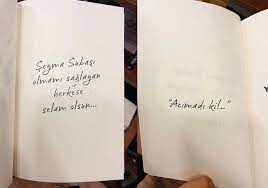 Şeyma Subaşı
olmamı sağlayan
herkese
selam olsun...
"Acımadı ki!..."
Y